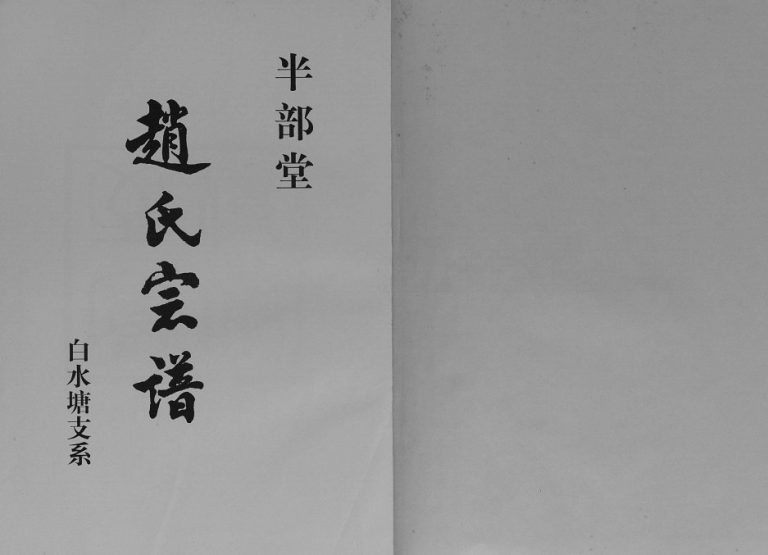 半部堂
趙氏宗谱
白水塘支系